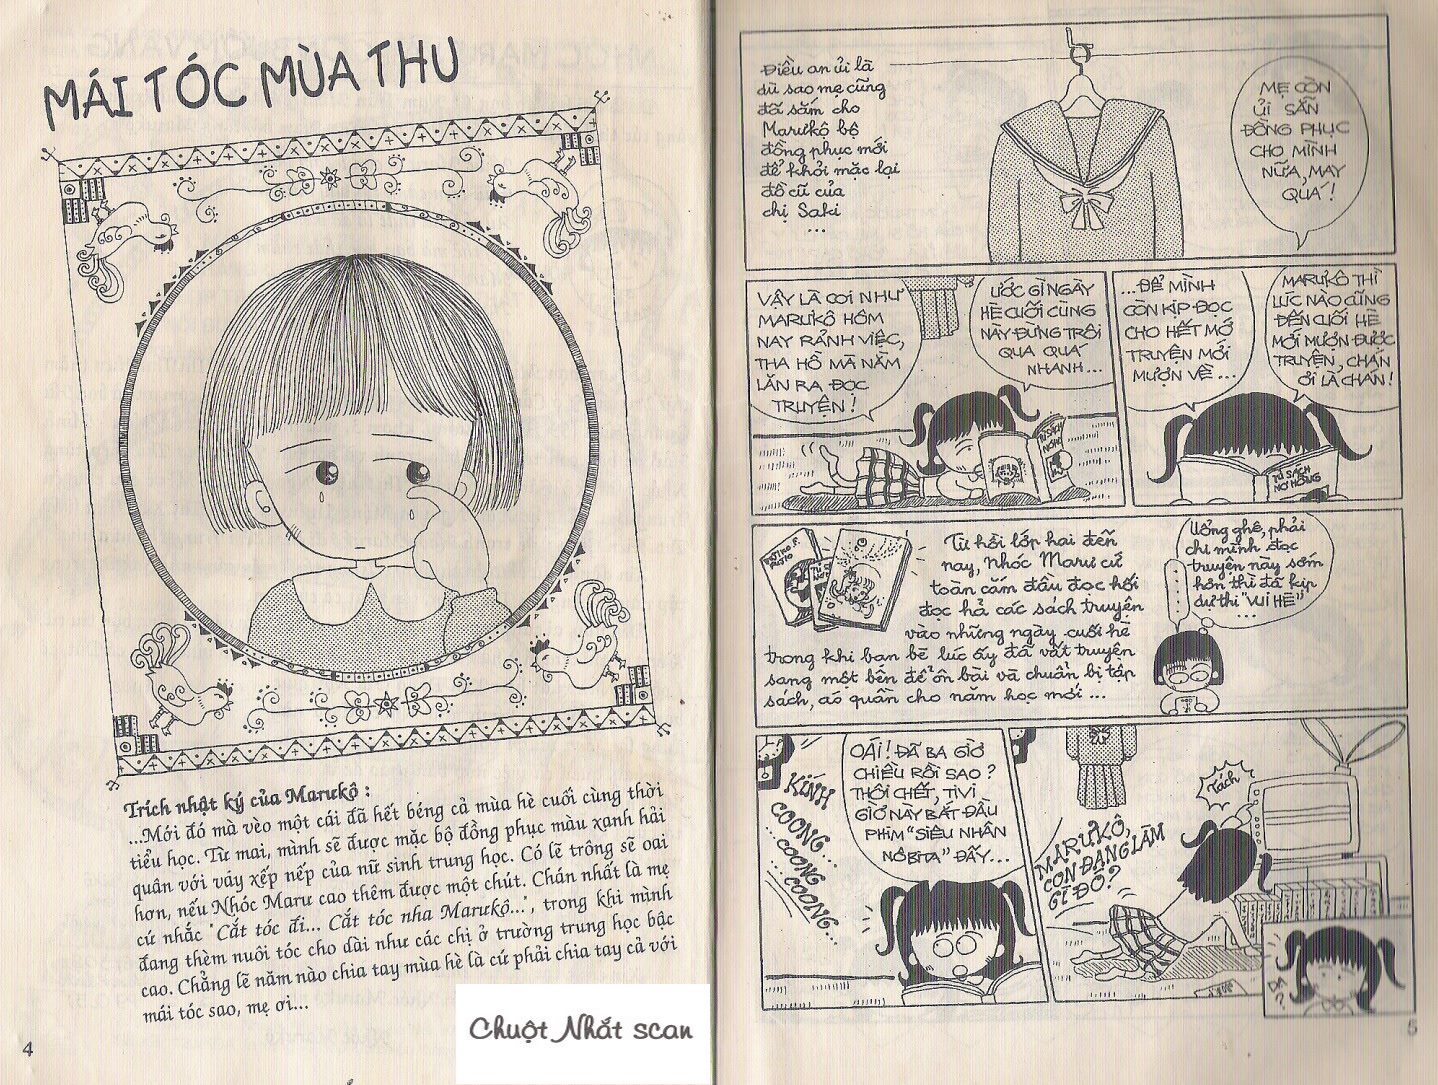 MÁI TÓC MÙA THU
Trích nhật ký của Marukô :
...Mới đó mà vèo một cái đã hết béng cả mùa hè cuối cùng thời
tiểu học. Từ mai, mình sẽ được mặc bộ đồng phục màu xanh hải
quân với váy xếp nếp của nữ sinh trung học. Có lẽ trông sẽ oai
hơn, nếu Nhóc Maru cao thêm được một chút. Chán nhất là mẹ
cứ nhắc "Cắt tóc đi... Cắt tóc nha Marukô...", trong khi mình
đang thèm nuôi tóc cho dài như các chị ở trường trung học bậc
cao. Chẳng lẽ năm nào chia tay mùa hè là cứ phải chia tay cả với
mái tóc sao, mẹ ơi...
Chuột Nhắt scan
4
Điều an ủi là
dù sao mẹ cũng
đã sắm cho
Marukô bộ
đồng phục mới
để khỏi mặc lại
đồ cũ của
chị Saki
...
MẸ CÒN
ỦI SẴN
ĐỒNG PHỤC
CHO MÌNH
NỮA, MAY
QUÁ!
VẬY LÀ COI NHƯ
MARUKÔ HÔM
NAY RẢNH VIỆC,
THA HỒ MÀ NẰM
LĂN RA ĐỌC
TRUYỆN!
ƯỚC GÌ NGÀY
HÈ CUỐI CÙNG
NÀY ĐỪNG TRÔI
QUA QUÁ
NHANH...
TỦ SÁCH
...ĐỂ MÌNH
CÒN KỊP ĐỌC
CHO HẾT MỚ
TRUYỆN MỚI
MƯỢN VỀ...
MARUKÔ THÌ
LÚC NÀO CŨNG
ĐẾN CUỐI HÈ
MỚI MƯỢN ĐƯỢC
TRUYỆN, CHÁN
ƠI LÀ CHÁN!
TỦ SÁCH
NƠ HỒNG
Từ hồi lớp hai đến
nay, Nhóc Maru cứ
toàn cắm đầu đọc hối
đọc hả các sách truyện
vào những ngày cuối hè
trong khi bạn bè lúc ấy đã vất truyện
sang một bên để ôn bài và chuẩn bị tập
sách, áo quần cho năm học mới ...
Uổng ghê, phải
chi mình đọc
truyện này sớm
hơn thì đã kịp
dự thi "VUI HÈ"
...
KÍNH
COONG...
...COONG
COONG...
OÁI! ĐÃ BA GIỜ
CHIỀU RỒI SAO?
THÔI CHẾT, TIVI
GIỜ NÀY BẮT ĐẦU
PHIM "SIÊU NHÂN
NÔBITA" ĐẤY...
Tách
MARUKÔ,
CON ĐANG LÀM
GÌ ĐÓ?
5